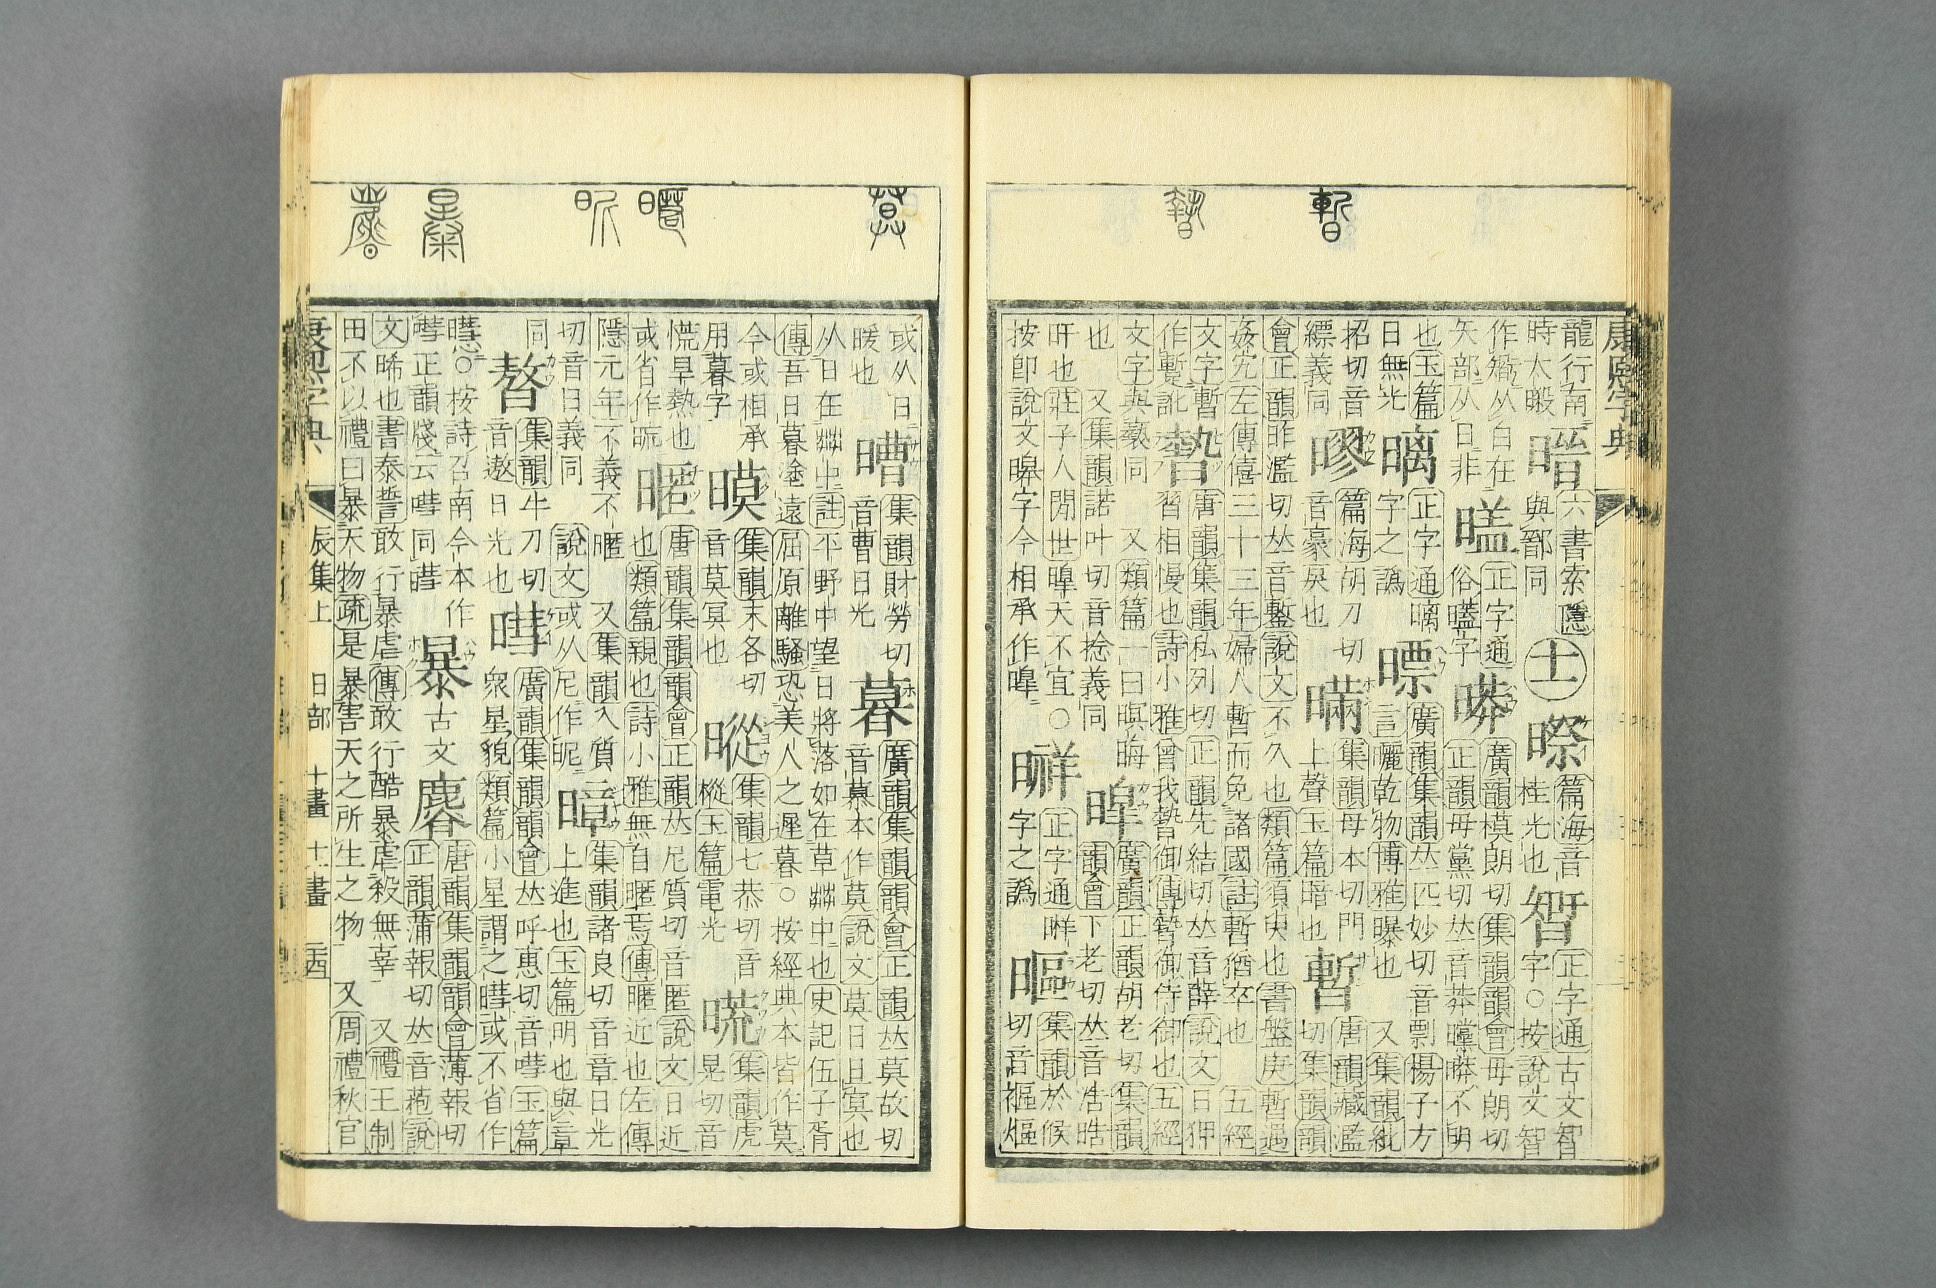 康熙字典
龍行南
時大暇
六書索隱
與鄑同
暩
篇海音
桂光也
正字通古文智
字○按說文智
作𥏼从白在
矢部从日非
正字通
俗㬃字
廣韻模朗切集韻韻會母朗切
正韻毋黨切𠀤音莽曭𣊲不明
也玉篇
日無光
正字通
字之譌
㬓
廣韻集韻𠀤匹妙切音剽揚子方
言曬乾物博雅曝也 又集韻紕
招切音
縹義同
篇海胡刀切
音豪戾也
暪
集韻母本切門
上聲玉篇暗也
暫
唐韻藏濫
切集韻韻
會正韻昨濫切𠀤音鏨說文不久也類篇須臾也書盤庚暫遇
姦宄左傳僖三十三年婦人暫而免諸國註暫猶卒也 五經
文字暫
作蹔訛
暬
唐韻集韻私列切正韻先結切𠀤音薛說文日狎
習相慢也詩小雅曾我暬御傳暬御侍御也 五經
文字與褻同 又類篇一曰暝晦
也 又集韻諾叶切音捻義同
暭
廣韻正韻胡老切集韻
韻會下老切𠀤音浩晧
旰也莊子人閒世暭天不宜○
按卽說文暤字今相承作暭
正字通
字之譌
集韻於候
切音
或从日
暖也
集韻財勞切
音曹日光
暮
廣韻集韻韻會正韻𠀤莫故切
音慕本作莫說文莫日且冥也
从日在茻中註平野中望日將落如在草茻中也史記伍子胥
傳吾日暮塗遠屈原離騷恐美人之遲暮○按經典本皆作莫
今或相承
用暮字
暯
集韻末各切
音莫冥也
暰
集韻七恭切音
樅玉篇電光
集韻虎
晃切音
慌旱熱也
或省作㫹
暱
唐韻集韻韻會正韻𠀤尼質切音匿說文日近
也類篇親也詩小雅無自暱焉傳暱近也左傳
隱元年不義不暱 又集韻入質
切音日義同 說文或从尼作昵
暲
集韻諸良切音章日光
上進也玉篇明也與章
同
集韻牛刀切
音遨日光也
暳
廣韻集韻韻會𠀤呼惠切音嘒玉篇
衆星貌類篇小星謂之暳或不省作
㬩○按詩召南今本作
嘒正韻牋云暳同嘒
暴
古文
唐韻集韻韻會薄報切
正韻蒲報切𠀤音菢說
文晞也書泰誓敢行暴虐傳敢行酷暴虐殺無辜 又禮王制
田不以禮曰暴天物疏是暴害天之所生之物 又周禮秋官
康熙字典 辰集上 日部 十畫 十一畫